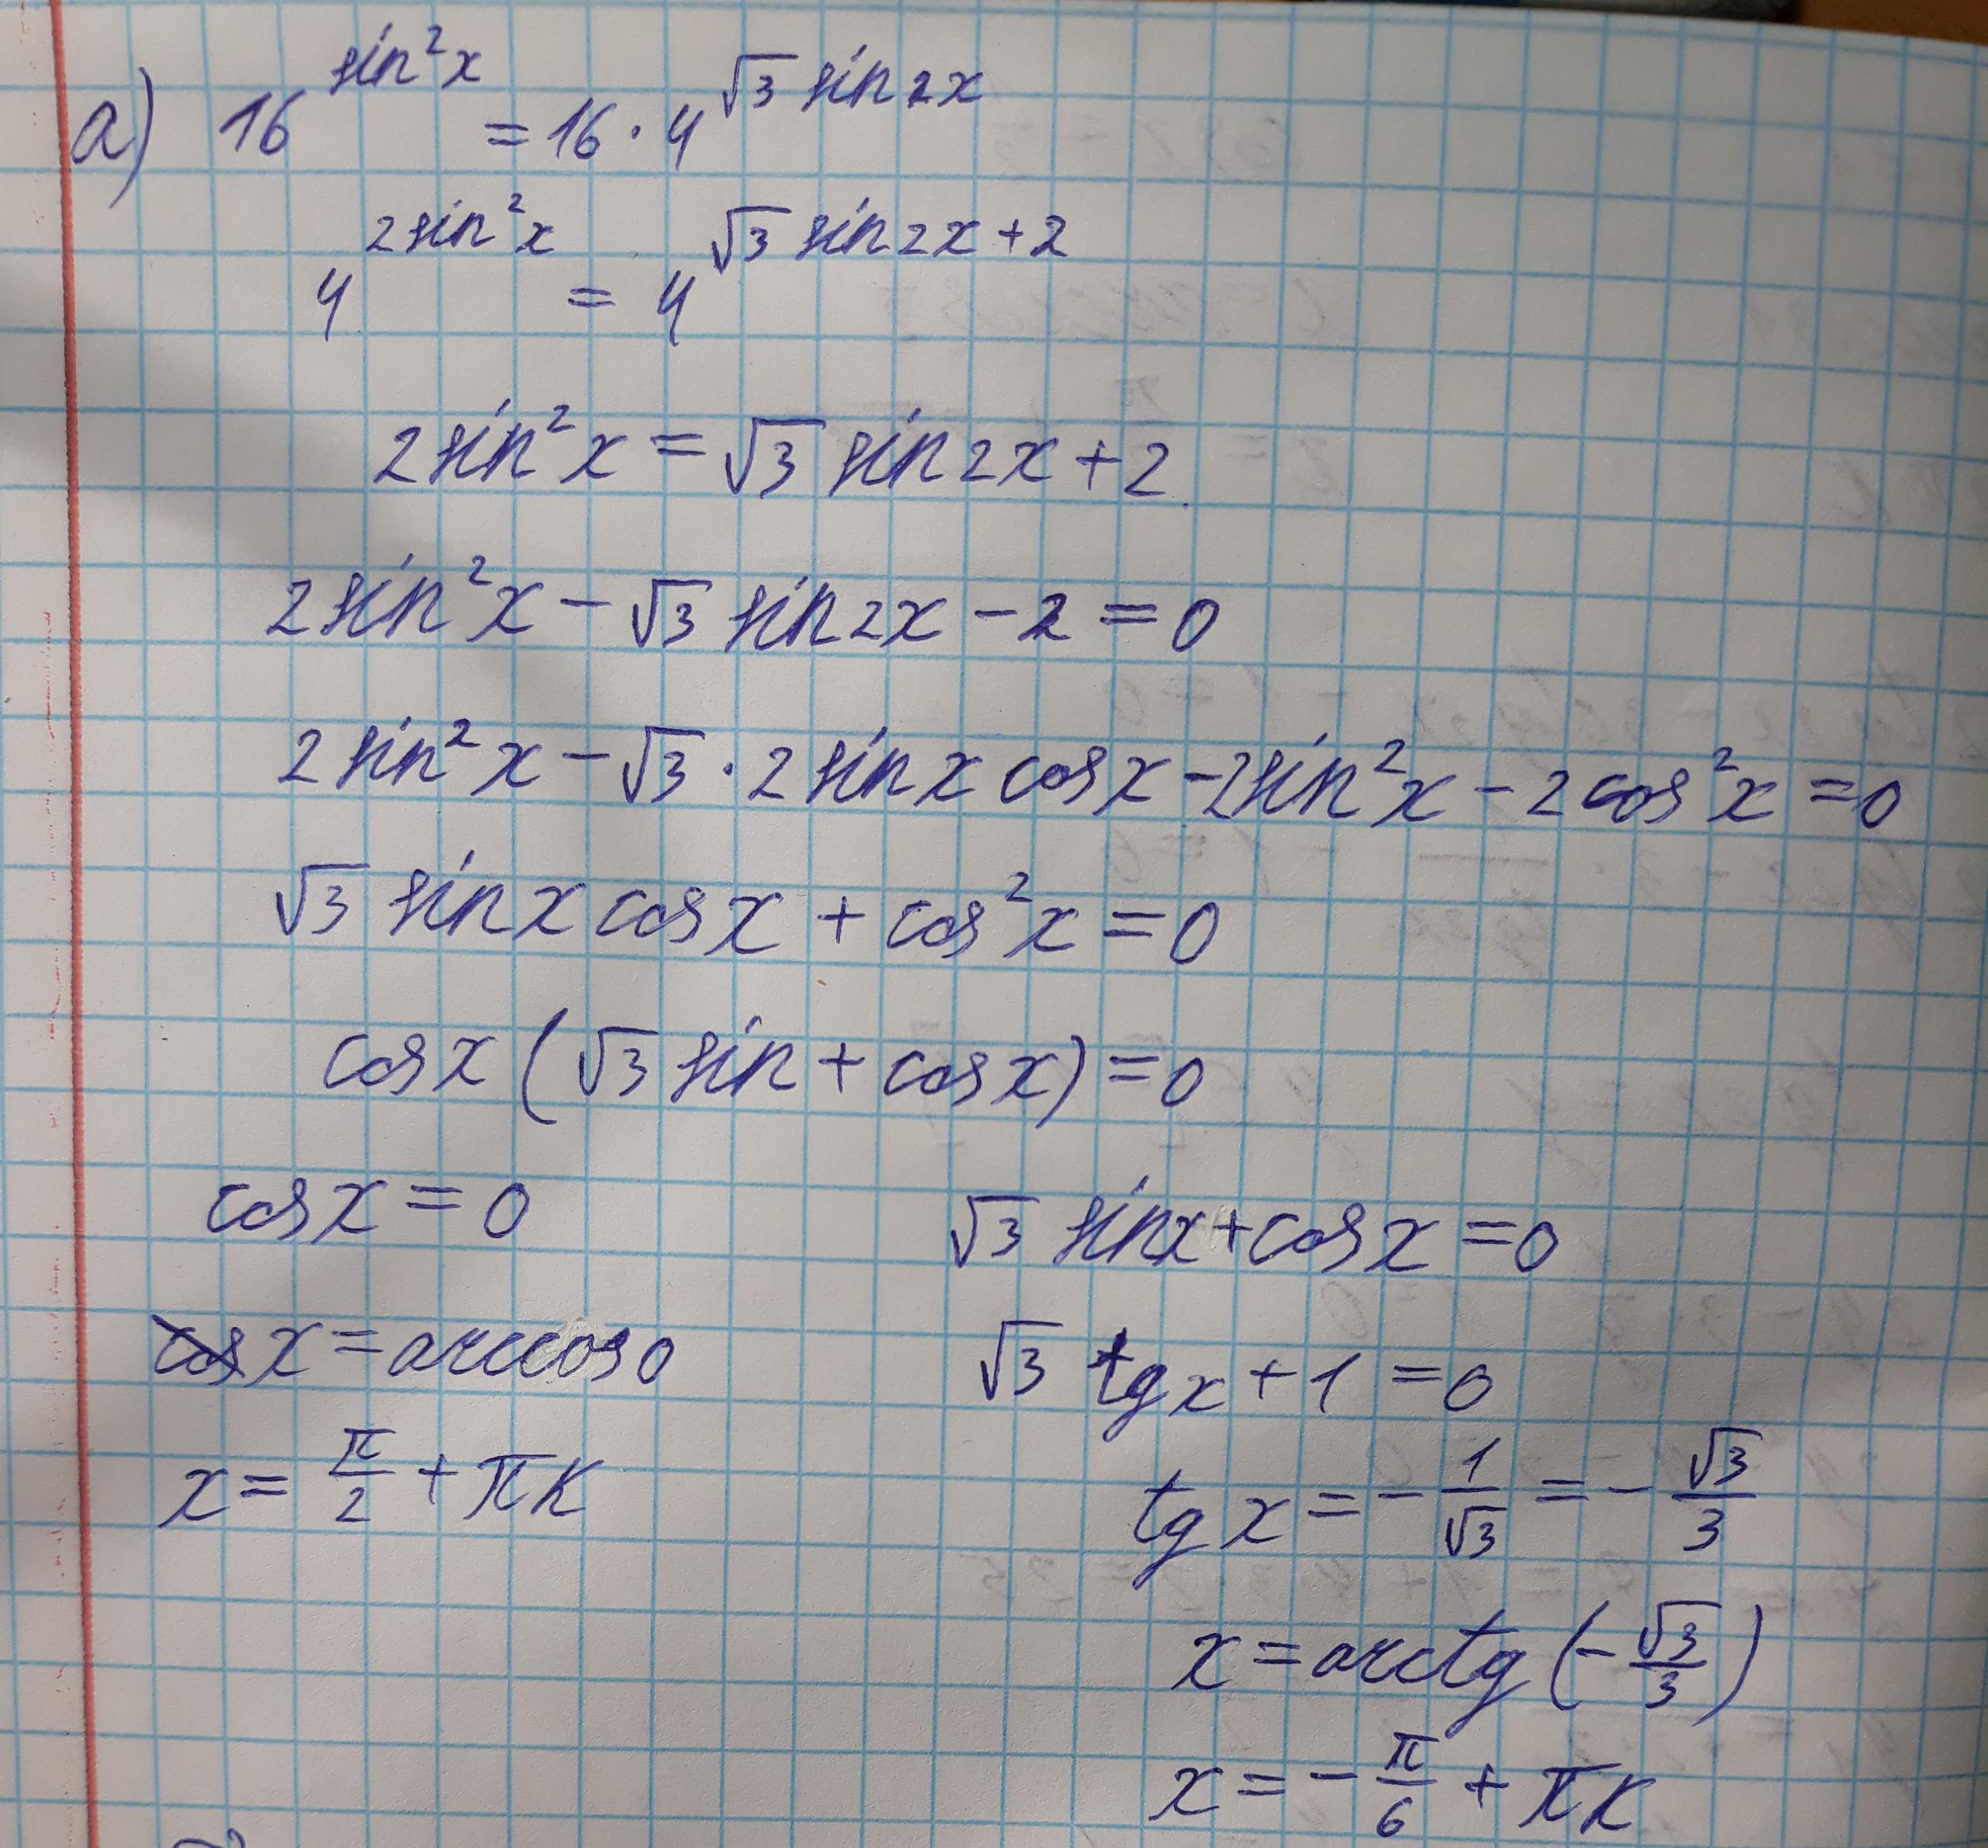 а) 16^{sin²x} = 16 · 4^{√3 sin 2x}
4^{2sin²x} = 4^{√3 sin 2x + 2}
2sin²x = √3 sin 2x + 2
2sin²x − √3 sin 2x − 2 = 0
2sin²x − √3 · 2 sin x cos x − 2sin²x − 2cos²x = 0
√3 sin x cos x + cos²x = 0
cos x (√3 sin + cos x) = 0
cos x = 0
x = arccos 0
x = π/2 + πk
√3 sin x + cos x = 0
√3 tg x + 1 = 0
tg x = − 1/√3 = − √3/3
x = arctg (− √3/3)
x = − π/6 + πk